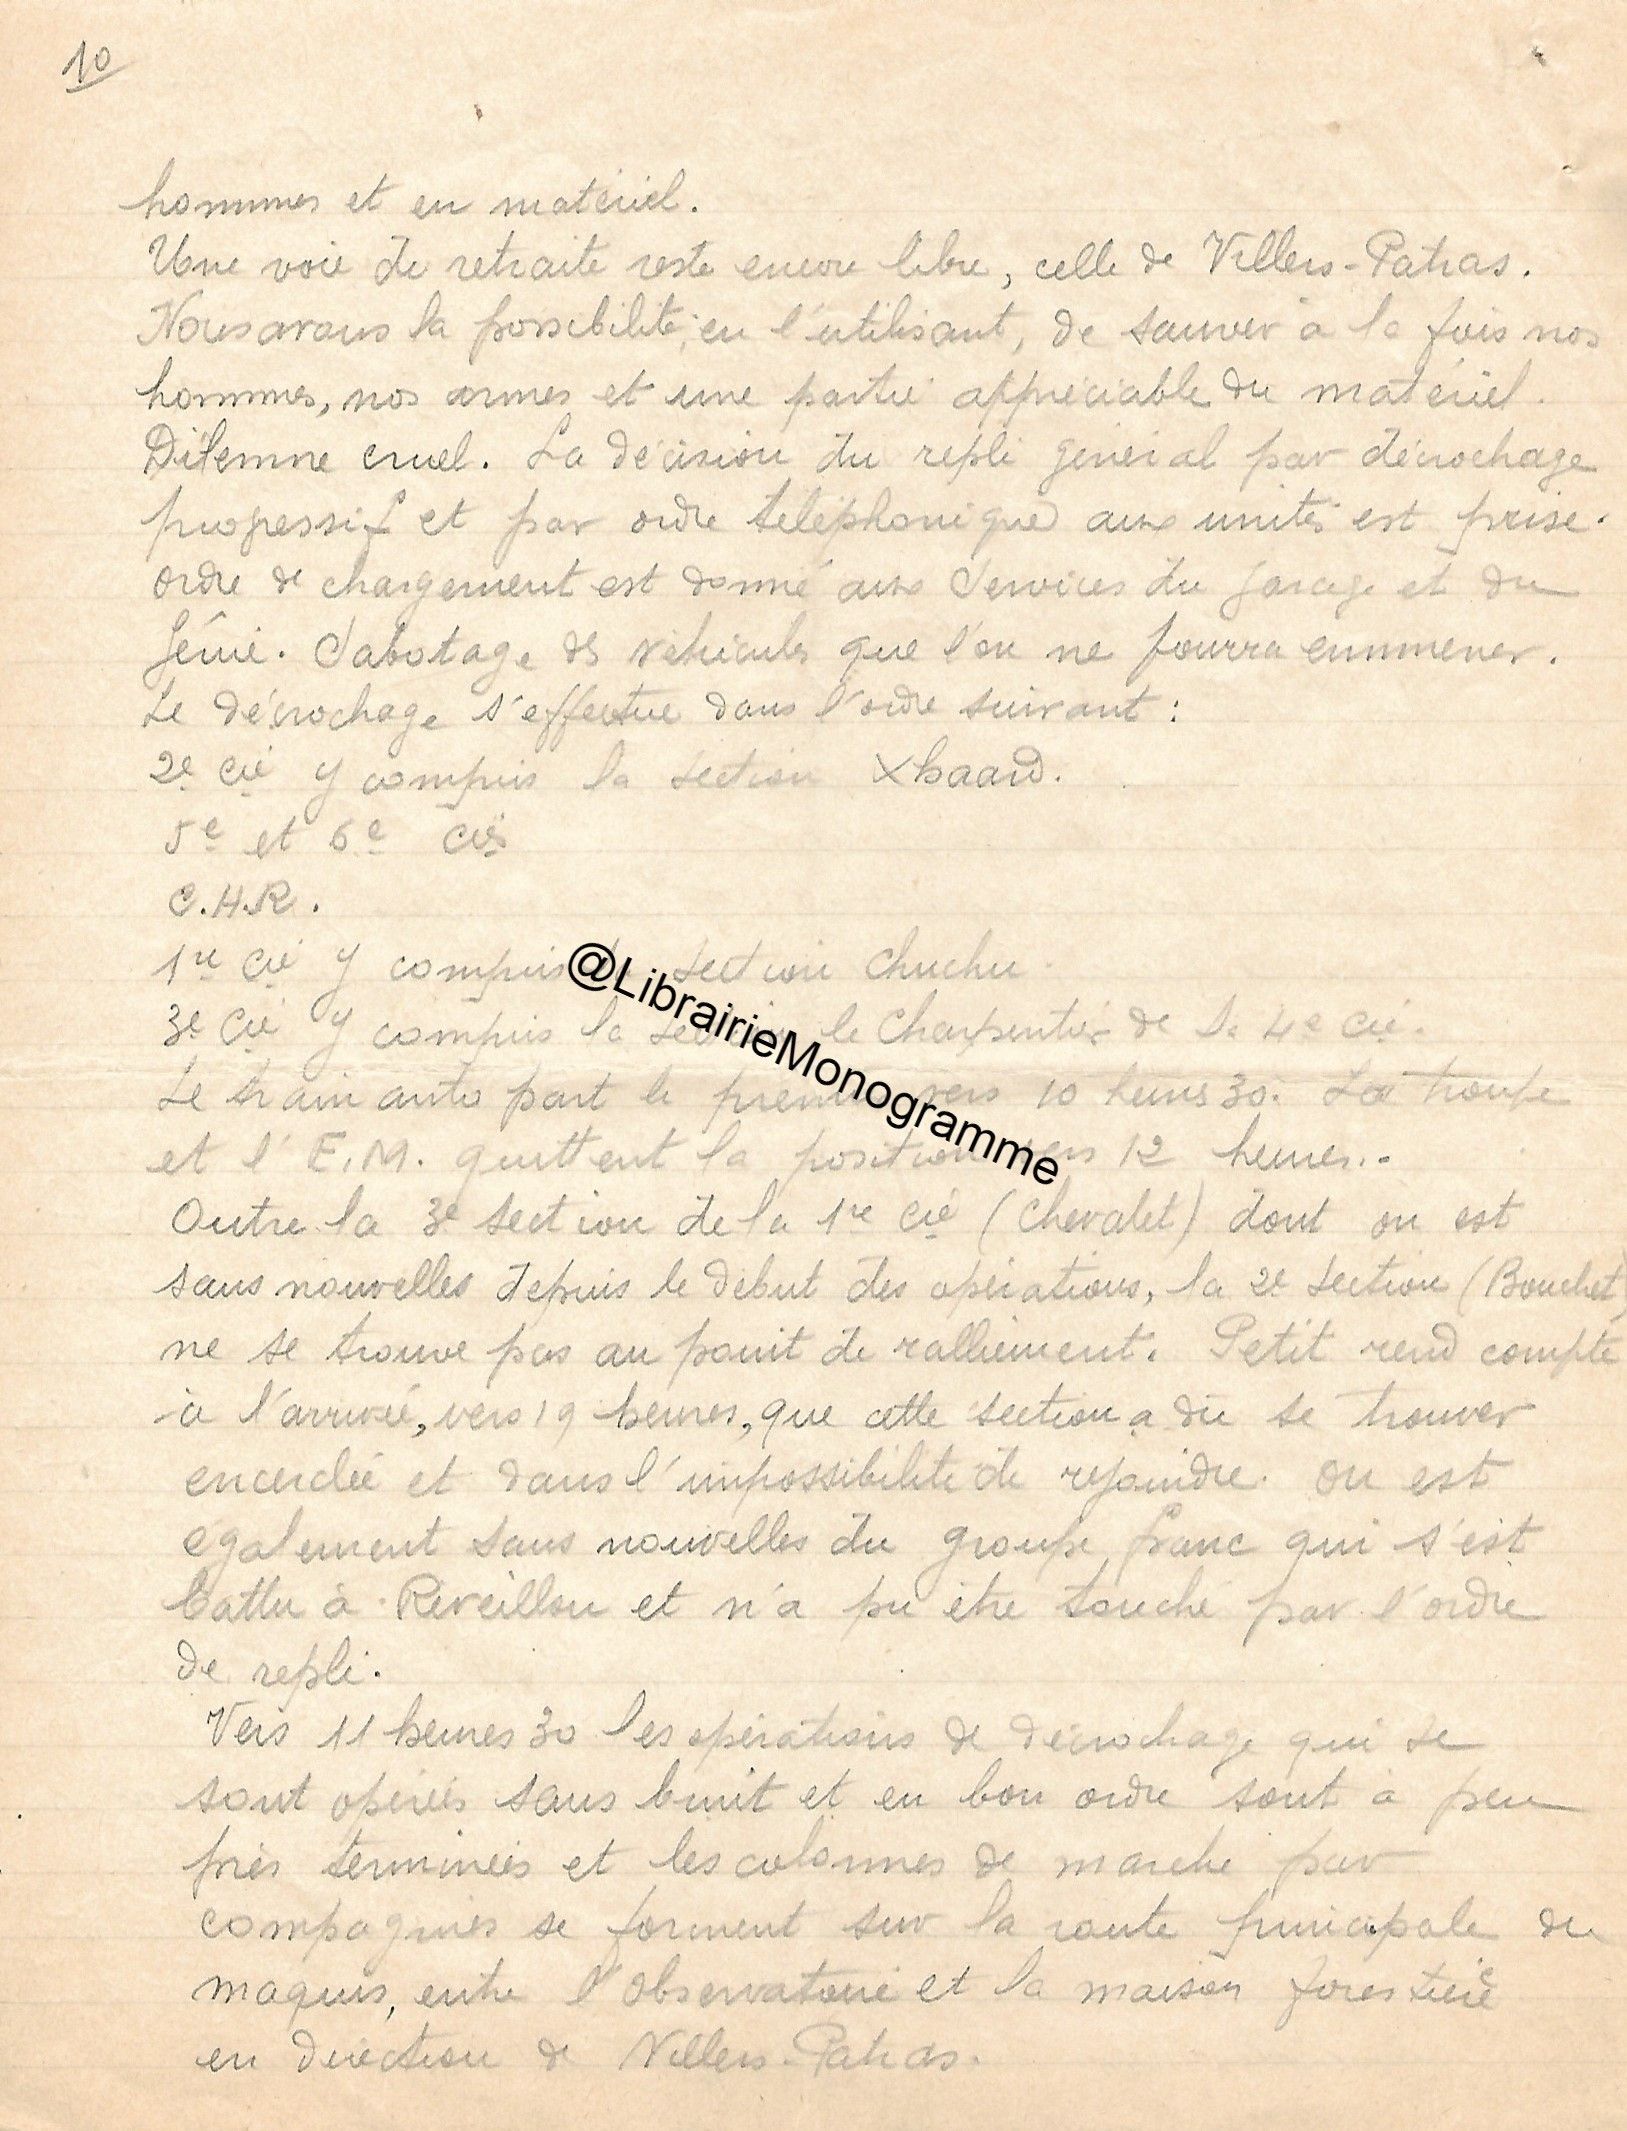 10
hommes et en matériel.
Une voie de retraite reste encore libre, celle de Villers-Patras.
Nous avons la possibilité, en l'utilisant, de sauver à la fois nos
hommes, nos armes et une partie appréciable du matériel.
Dilemne cruel. La décision du repli général par décrochage
progressif et par ordre téléphonique aux unités est prise.
Ordre de chargement est donné aux Services du garage et du
Génie. Sabotage des véhicules que l'on ne pourra emmener.
Le décrochage s'effectue dans l'ordre suivant :
2e Cie y compris la section Xhaard.
5e et 6e Cies
C.H.R.
1re Cie y compris la section Chuchu.
3e Cie y compris la section le Charpentier de la 4e Cie.
Le train auto part le premier vers 10 heures 30. La troupe
et l'E.M. quittent la position vers 12 heures..
Outre la 3e section de la 1re Cie (Chevalet) dont on est
sans nouvelles depuis le début des opérations, la 2e section (Bouchet)
ne se trouve pas au point de ralliement. Petit rend compte
à l'arrivée, vers 19 heures, que cette section a dû se trouver
encerclée et dans l'impossibilité de rejoindre. On est
également sans nouvelles du groupe franc qui s'est
battu à Réveillon et n'a pu être touché par l'ordre
de repli.
Vers 11 heures 30 les opérations de décrochage qui se
sont opérées sans bruit et en bon ordre sont à peu
près terminées et les colonnes de marche par
compagnies se forment sur la route principale du
maquis, entre l'Observatoire et la maison forestière
en direction de Villers-Patras.
@LibrairieMonogramme